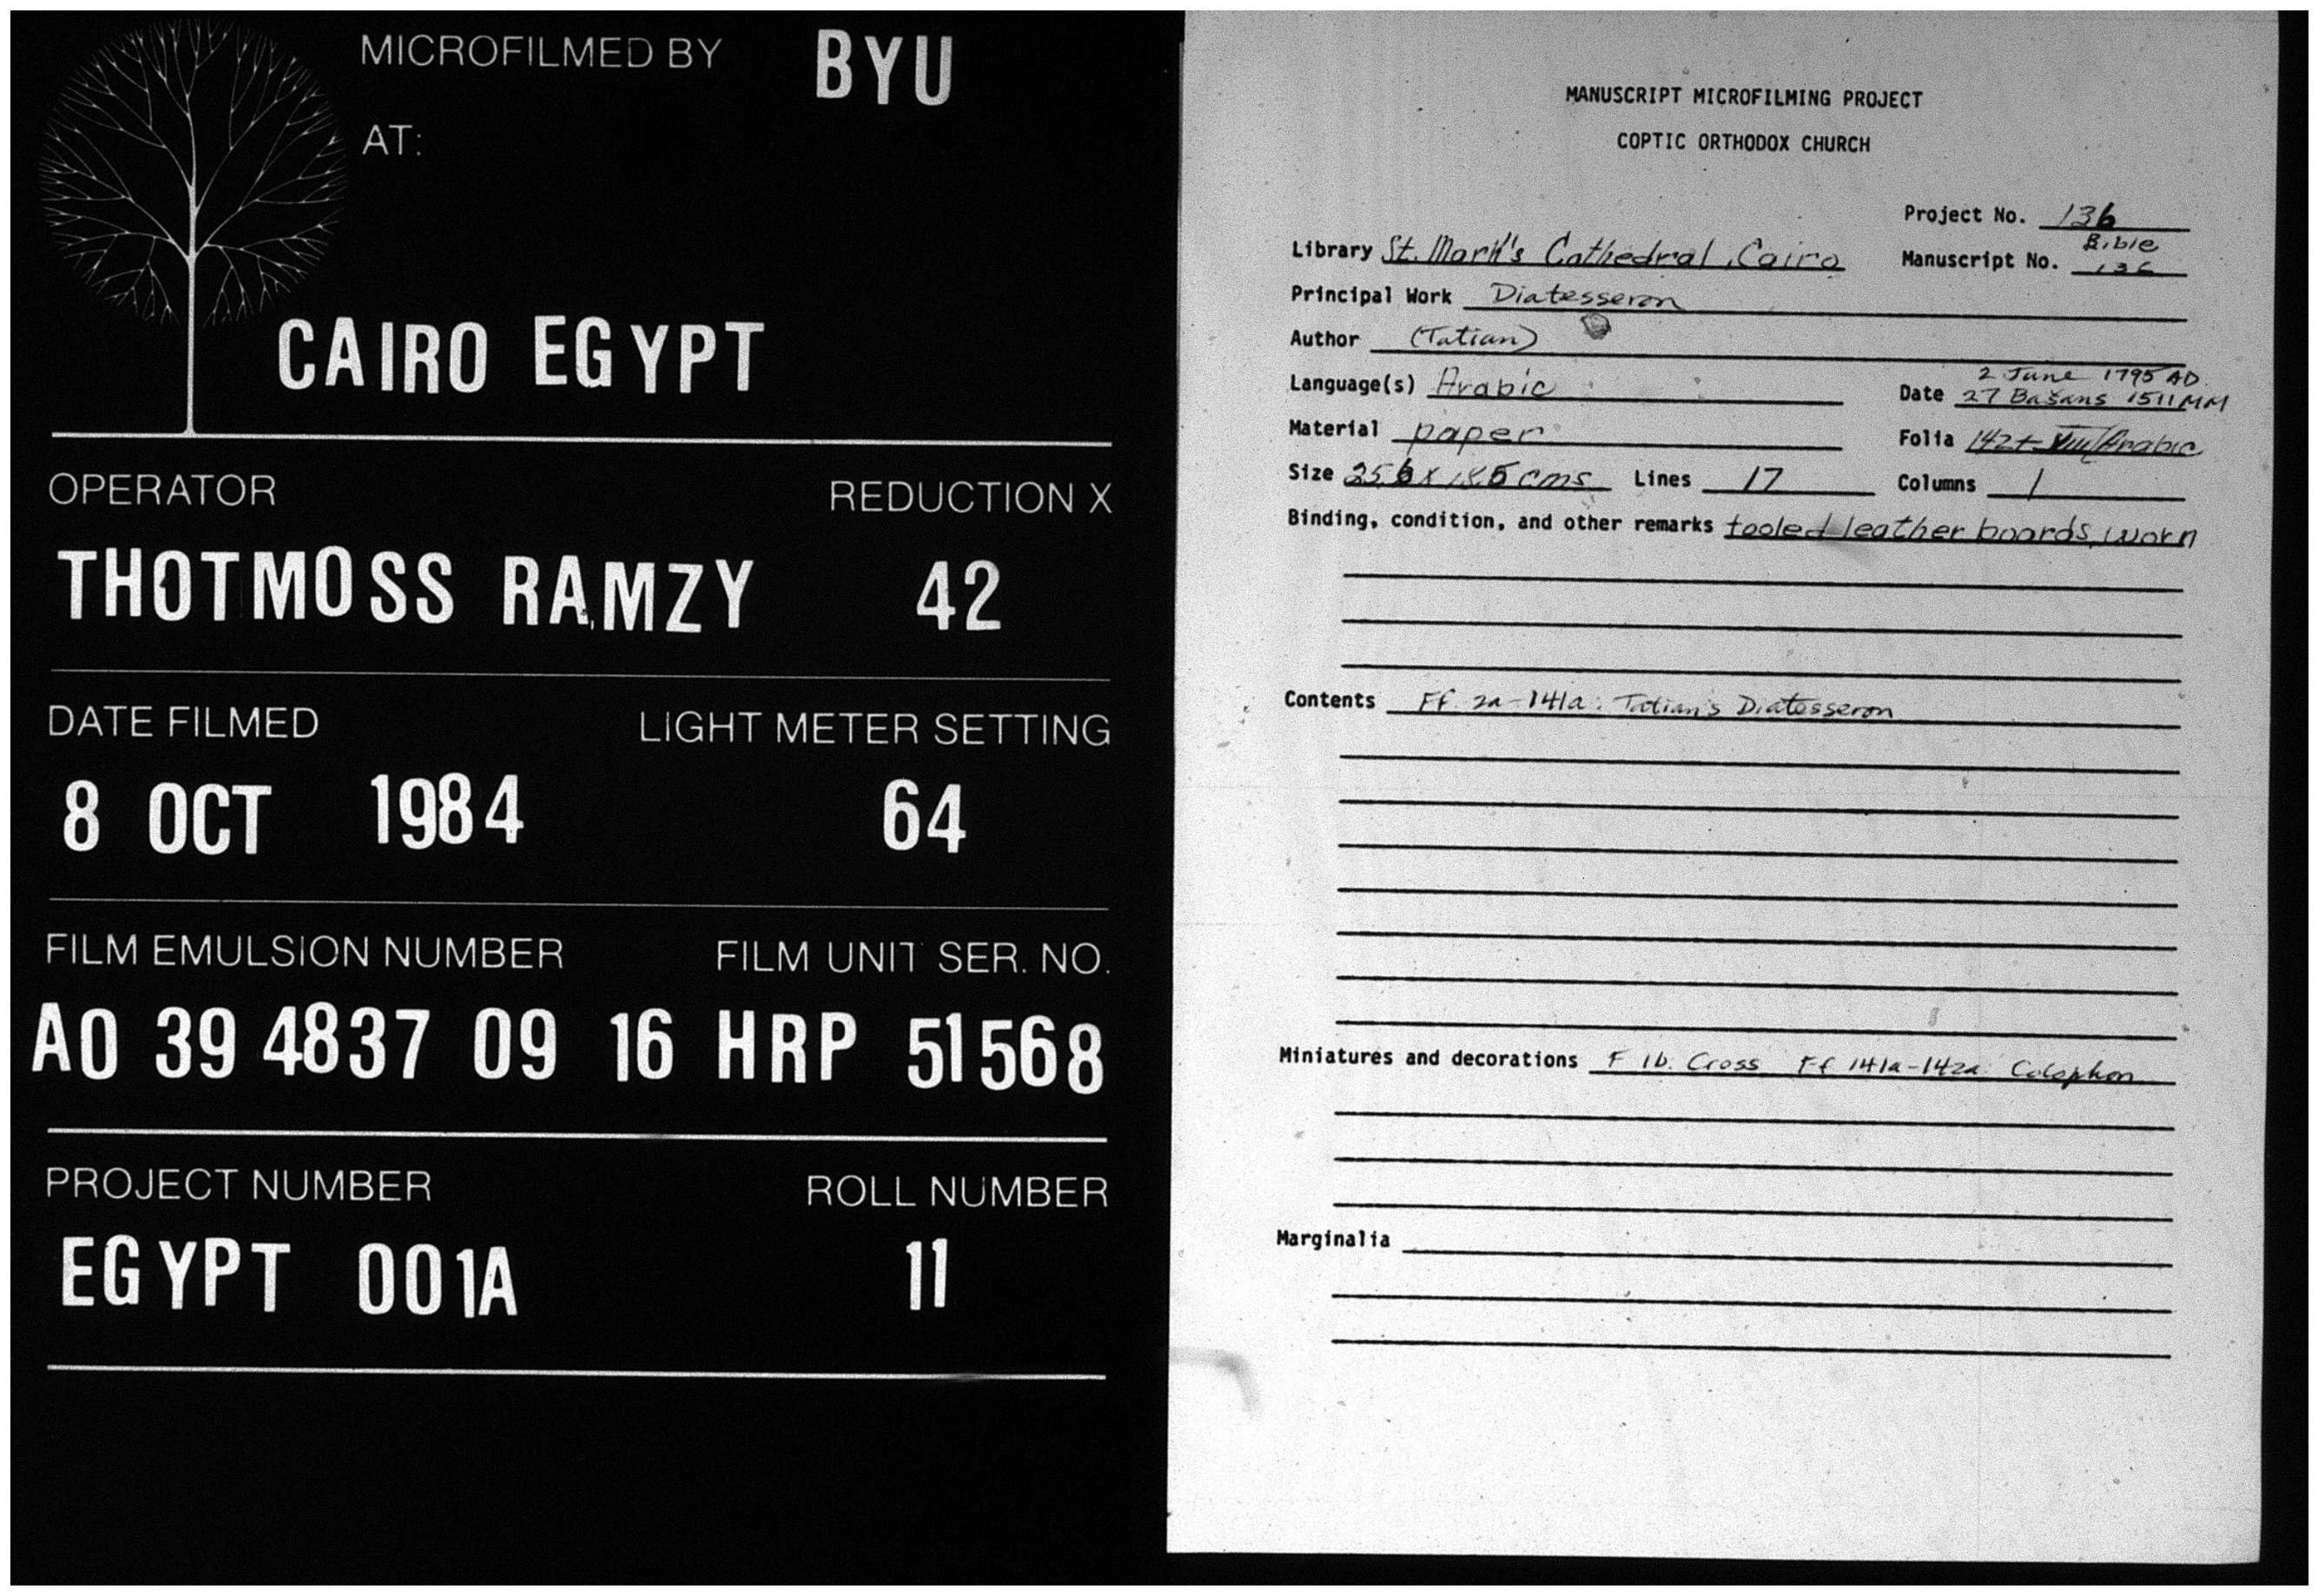 MICROFILMED BY BYU
AT:
CAIRO EGYPT
OPERATOR REDUCTION X
THOTMOSS RAMZY 42
DATE FILMED LIGHT METER SETTING
8 OCT 1984 64
FILM EMULSION NUMBER FILM UNIT SER. NO.
A0 39 4837 09 16 HRP 51568
PROJECT NUMBER ROLL NUMBER
EGYPT 001A 11
MANUSCRIPT MICROFILMING PROJECT
COPTIC ORTHODOX CHURCH
Project No. 136
Library St. Mark's Cathedral, Cairo Manuscript No. Bible 136
Principal Work Diatesseron
Author (Tatian)
Language(s) Arabic Date 2 June 1795 AD.
27 Bašans 1511 MM
Material paper Folia 142+ VIII/Arabic
Size 25.6 x 18.5 cms Lines 17 Columns 1
Binding, condition, and other remarks tooled leather boards, worn
Contents Ff. 2a-141a: Tatian's Diatesseron
Miniatures and decorations F 1b: Cross Ff 141a-142a: Colophon
Marginalia